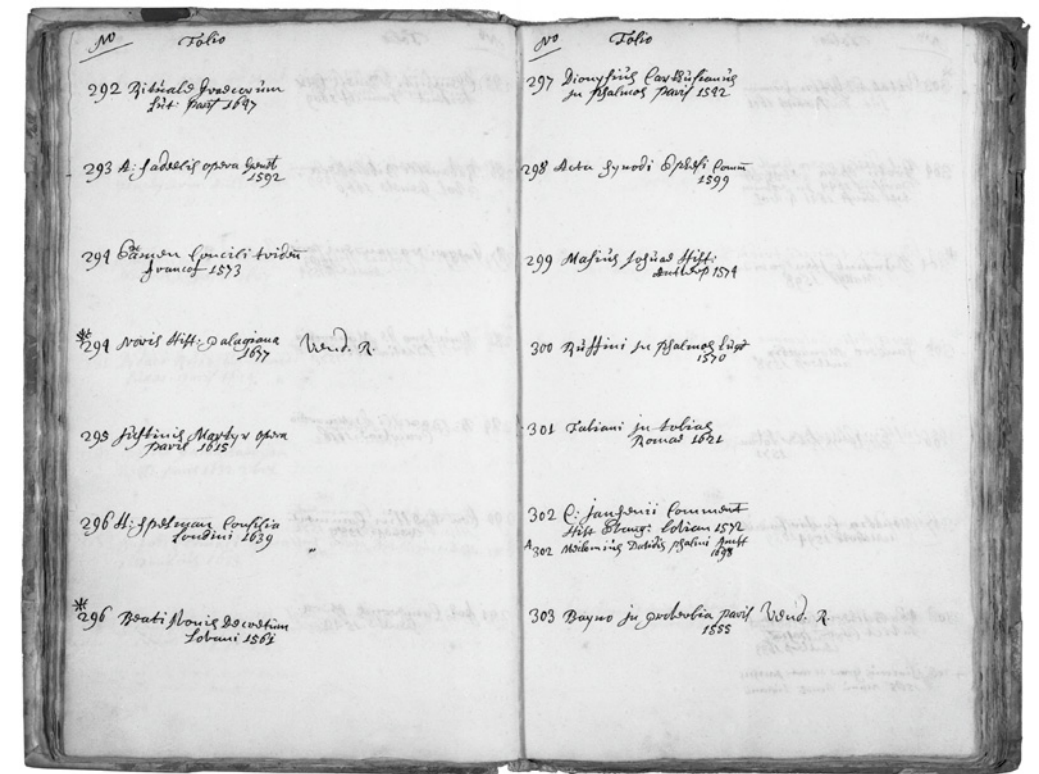 No Folio
292 Rituale Graecorum
lut: Paris 1647
293 A: Sadeelis opera Genev
1592
294 Examen Concilii tridem
francof 1573
*294 Noris Hist: Pelagiana
1677 Vend. R.
295 Justinus Martyr opera
Paris 1615
296 H: Spelman Consilia
Londini 1639
*296 Beati Ivonis Decretum
Lovani 1561
No Folio
297 Dionysius Carthusianus
in Psalmos Paris 1542
298 Acta Synodi Ephesi Comm
1599
299 Masius Josuae Hist:
Antverp 1574
300 Ruffini in Psalmos Lugd
1570
301 in tobias
Romae 1621
302 C: Jansenii Comment
Hist Evang: Lovian 1572
A 302 Davidis psalmi Amst
1698
303 Bayno in proverbia Paris Vend. R.
1555